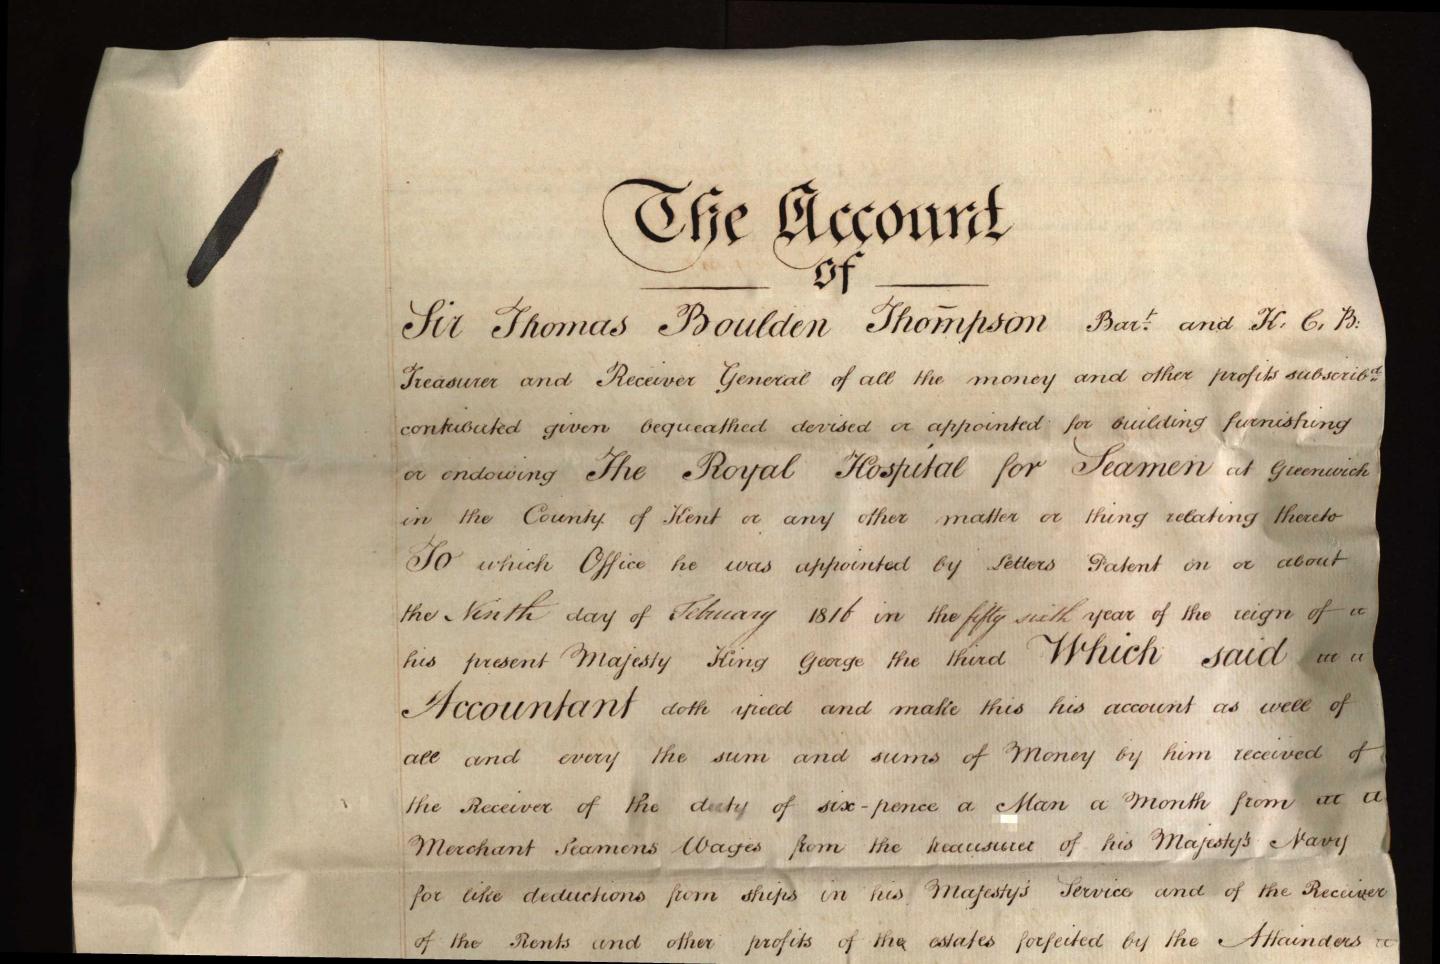 The Account
Of
Sir Thomas Boulden Thom̄pson Bar.t and K. C. B:
Treasurer and Receiver General of all the money and other profits subscrib.d
contributed given bequeathed devised or appointed for building furnishing
or endowing The Royal Hospital for Seamen at Greenwich
in the County of Kent or any other matter or thing relating thereto
To which Office he was appointed by Letters Patent on or about
the Ninth day of February 1816 in the fifty sixth year of the reign of
his present Majesty King George the third Which said
Accountant doth yield and make this his account as well of
all and every the sum and sums of Money by him received of
the Receiver of the duty of six-pence a Man a Month from
Merchant Seamens Wages from the treasurer of his Majesty's Navy
for like deductions from ships in his Majesty's Service and of the Receiver
of the Rents and other profits of the estates forfeited by the Attainders